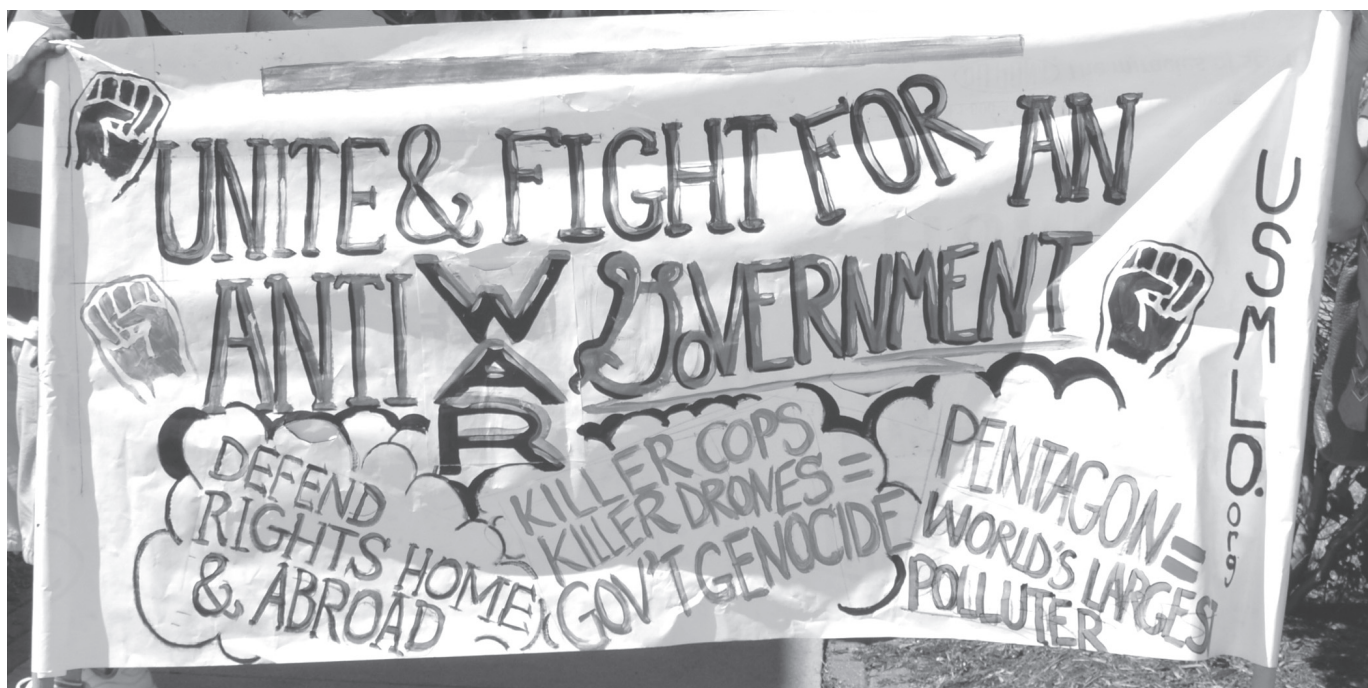 UNITE & FIGHT FOR AN
ANTI WAR GOVERNMENT
DEFEND
RIGHTS HOME
& ABROAD
KILLER COPS
KILLER DRONES =
GOV'T GENOCIDE
PENTAGON=
WORLD'S LARGES
POLLUTER
USMLO.org